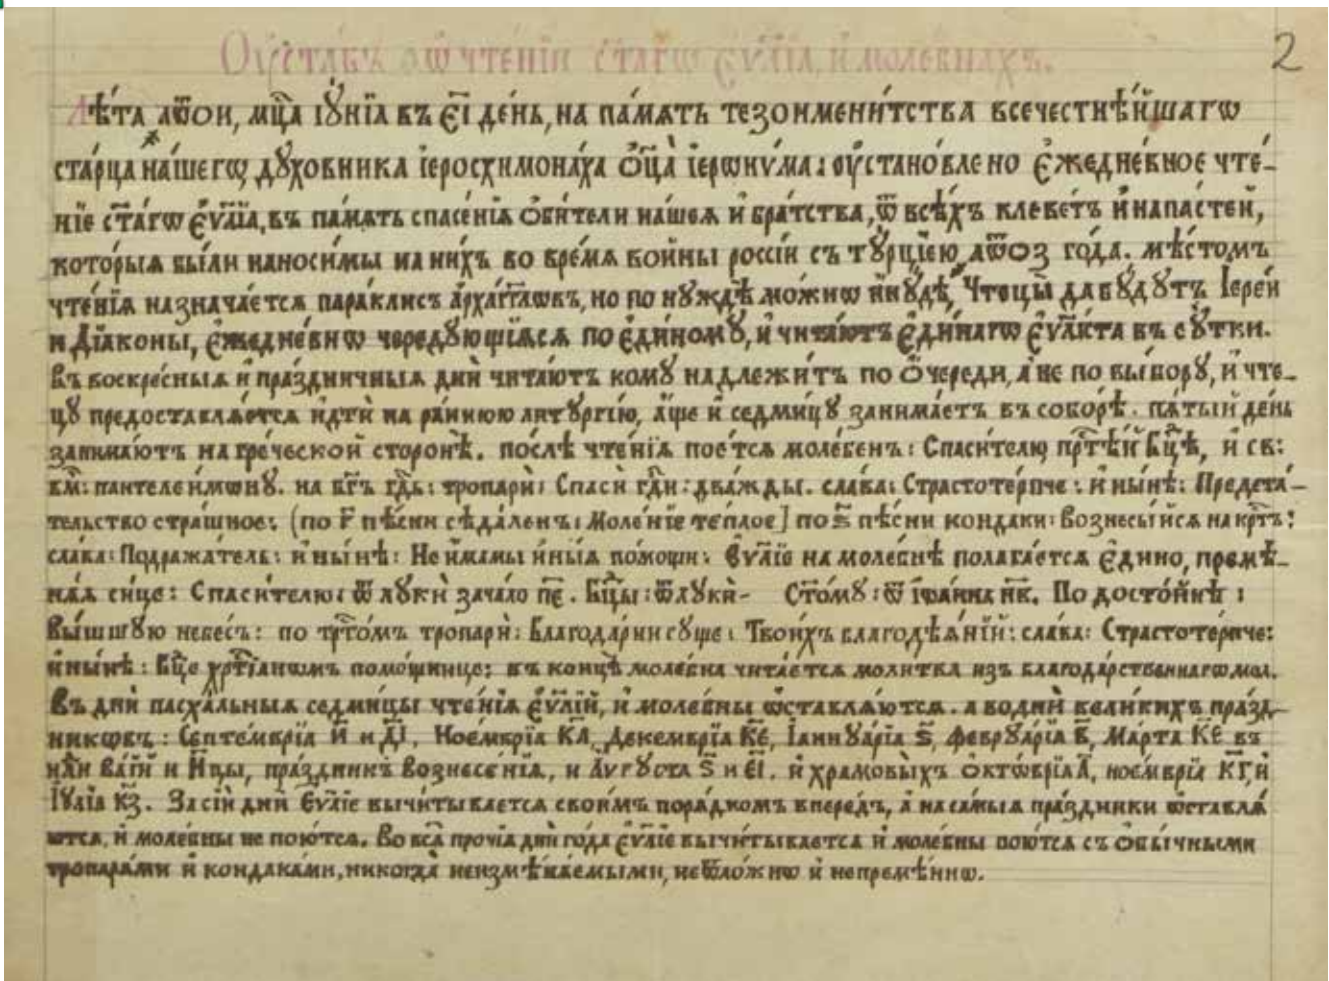 Оуставъ ѡ чтенїи ст҃агѡ Єѵⷢ҇лїа, и молебнахъ.
2
Лѣ́та аѿои, мц҃а Іꙋ́нїа въ є҃і де́нь, на па́мѧть тезоимени́тства всечестнѣ́йшагѡ
ста́рца на́шегѡ дꙋхо́вника іеросхимона́ха Ѻ҆ц҃а̀ іерѡнѵма: оу҆стано́влено Є҆жедне́вное чте́-
нїе ст҃а́гѡ Є҆ѵⷢ҇лїа, въ па́мѧть спасе́нїѧ ѻ҆би́тели на́шеѧ и҆ бра́тства, ѿ всѣ́хъ клеве́тъ и҆ напа́стей,
кото́рыѧ бы́ли наноси́мы на ни́хъ во вре́мѧ войны̀ россі́и съ тꙋ́рцїею аѿоз го́да. мѣ́стомъ
чте́нїѧ назнача́етсѧ пара́клисъ а҆рха́гг҃лѡвъ, но по нꙋ́ждѣ мо́жнѡ и҆нꙋ́дѣ, Чтецы̀ да бꙋ́дꙋтъ Іере́и
и Дїа́коны, є҆жедне́внѡ чередꙋ́ющїѧсѧ по є҆ди́номꙋ, и҆ чита́ютъ є҆ди́наго Є҆ѵⷢ҇лі́ста въ сꙋ́тки.
Въ воскре́сныѧ и҆ пра́здничныѧ днѝ чита́ютъ комꙋ̀ надлежи́тъ по ѻ҆́череди, а҆ не по вы́борꙋ, и҆ чте-
цꙋ̀ предоставлѧ́етсѧ и҆дтѝ на ра́ннюю литꙋргі́ю, а҆́ще и҆ седми́цꙋ занима́етъ въ собо́рѣ. пѧ́тый де́нь
занима́ютъ на гре́ческой сторонѣ̀. по́слѣ чте́нїѧ пое́тсѧ моле́бенъ: Спаси́телю, прⷭ҇тѣ́й Бц҃ѣ, и҆ св:
вм҃: пантелеи́мѡнꙋ. на бг҃ъ гдⷭ҇ь: тропарѝ: Спасѝ гдⷭ҇и: два́жды. сла́ва: Страстоте́рпче: и҆ ны́нѣ: Предста́-
тельство стра́шное: (по г҃ пѣ́сни сѣда́ленъ: Моле́нїе те́плое] по ѕ҃ пѣ́сни кондаки: Вознесы́йсѧ на крⷭ҇тъ:
сла́ва: Подража́тель: и҆ ны́нѣ: Не и҆́мамы и҆ны́ѧ по́мощи: Єѵⷢ҇лїе на моле́бнѣ полага́етсѧ є҆ди́но, премѣ́-
на́ѧ си́це: Спаси́телю: ѿ лꙋкѝ зача́ло п҃є. Бц҃ы: ѿ лꙋкѝ- Ст҃о́мꙋ: ѿ Іѡа́нна н҃в. По досто́йнѣ:
Вы́шшꙋю небе́съ: по трⷭ҇то́мъ тропарѝ: Благода́рни сꙋ́ще: Твои́хъ благодѣѧ́нїй: сла́ва: Страстоте́рпче:
и҆ ны́нѣ: Бц҃е хрⷭ҇тїа́нѡмъ помо́щнице: въ концѣ̀ моле́бна чита́етсѧ моли́тва изъ благода́рственнагѡ мол.
Въ днѝ пасха́льныѧ седми́цы чте́нїѧ Є҆ѵⷢ҇лїй, и҆ моле́бны ѡ҆ставлѧ́ютсѧ. а во днѝ вели́кихъ пра́зд-
никѡвъ: Септе́мврїа и҃ и д҃і, Ное́мврїа к҃а, Деке́мврїа к҃є, Іаннꙋа́рїа ѕ҃, Феврꙋа́рїа в҃, Ма́рта к҃є въ
нл҃и ва́їй и н҃цы, пра́здникъ Вознесе́нїѧ, и А҆́ѵгꙋста ѕ҃ и є҃і. и҆ храмовы́хъ Ѻктѡ́врїа а҃, ное́мврїа к҃г, и҆
Іꙋ́лїа к҃з. За сі́и днѝ Єѵⷢ҇лїе вычи́тывается свои́мъ порѧ́дкомъ впере́дъ, а҆ на са́мыѧ пра́здники ѡставлѧ́
ютсѧ, и҆ моле́бны не пою́тсѧ. Во всѧ̑ про́чїѧ днѝ го́да Є҆ѵⷢ҇лїе вычи́тываетсѧ и҆ моле́бны пою́тсѧ съ ѻ҆бы́чными
тропарѧ́ми и҆ кондака́ми, никогда̀ неизмѣнѧ́емыми, неѿло́жнѡ и҆ непремѣ́ннѡ.